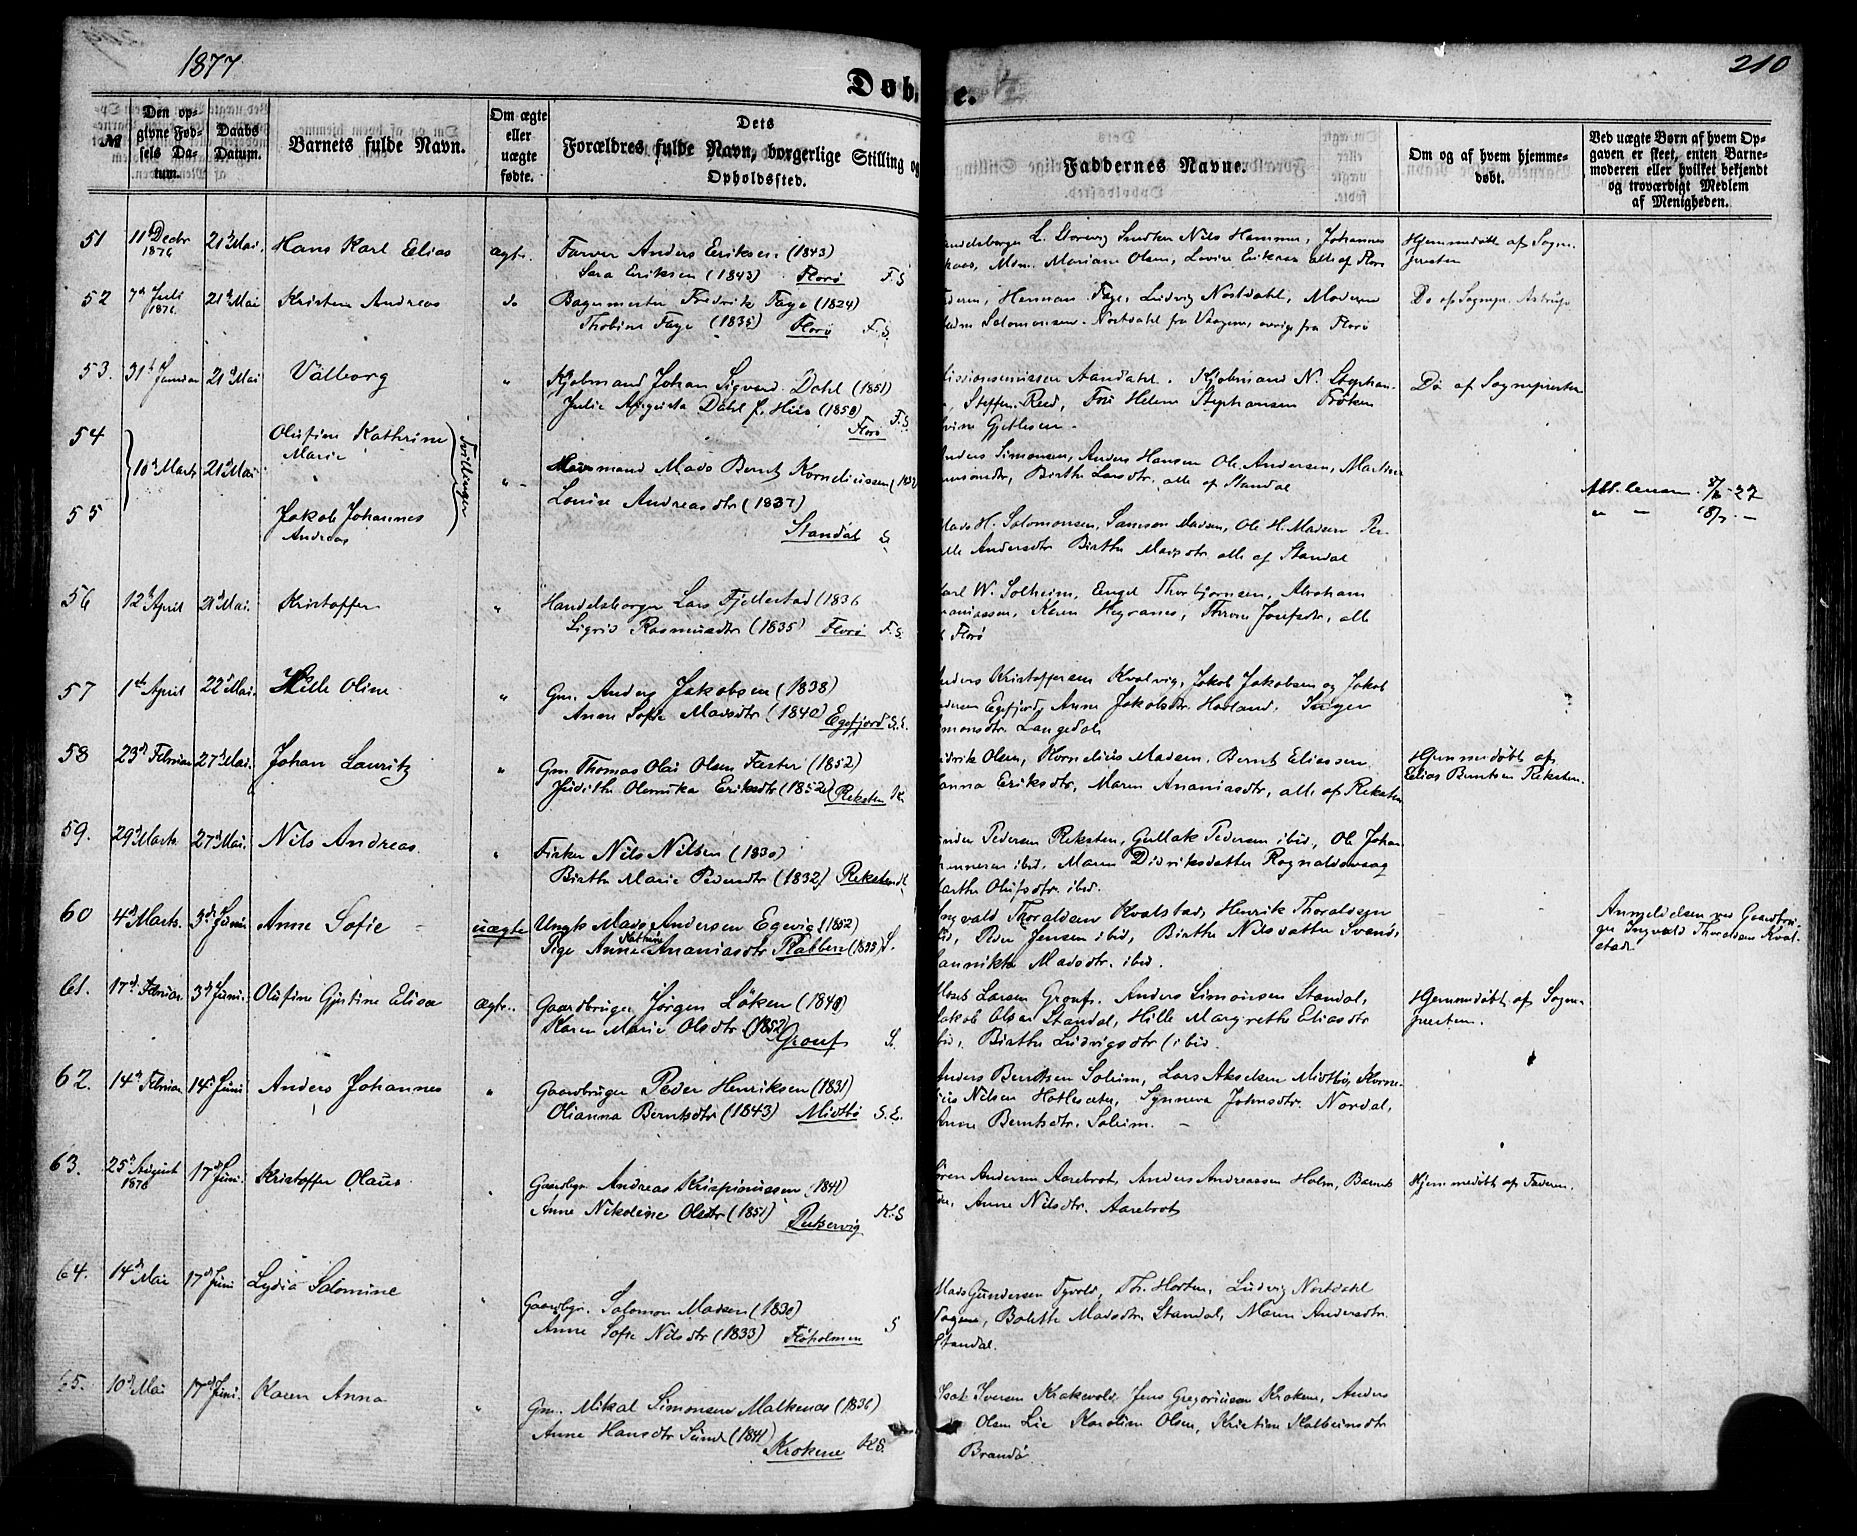 1877
210
Døb e.
№
Den opgivne Fødsels Datum.
Daabs Datum.
Barnets fulde Navn.
Om ægte eller uægte fødte.
Dets Forældres fulde Navn, borgerlige Stilling og Opholdssted.
Faddernes Navne.
Om og af hvem hjemmedøbt.
Ved uægte Børn af hvem Opgaven er skeet, enten Barnemoderen eller hvilket bekjendt og troværdigt Medlem af Menigheden.
51 11t Decbr 1876 21d Mai. Hans Karl Elias ægte. Farver Anders Eriksen (1843)
Sara Eriksen (1843) Florø F. S
L. Snedker Nils Hammer, Johannes
Mdm. Mariane Olsen, Lovise Eriksen alle af Florø
Hjemmedøbt af Sogne
præsten
52 7de Juli 1876. 21d Mai Kristen Andreas do Bagermester Fredrik Faye (1824)
Thobine Faye (1835) Florø F. S.
Herman Faye, Ludvig Nordahl, Moderen
Salomonsen. Nordahl fra Vaagen, øvrige fra Florø
Do af Sognepr. Astrup
53. 31t Januar 21d Mai Valborg " Kjøbmand Johan Sigvard Dahl (1851)
Julie Augusta Dahl f. (1850) F. S.
Florø
Aandahl. Kjøbmand N. Stephan-
Steffen. Reed, Fru Helene Stephansen Frøken
Gjertsen.
Do af Sognepresten
54 10d Marts 21d Mai Olufine Kathrine
Marie
Tvillinger
" Mads Bernt Korneliussen
Louise Andreasdtr (1837)
Standal S.
Anders Simonsen, Anders Hansen Ole Andersen, Martine
Birthe Larsdtr. alle af Standal
55 Jakob Johannes
Andreas
Mads H. Salomonsen, Samson Madsen, Ole H. Madsen
Andersdtr Birthe Madsdtr alle af Standal
56 12te April 21d Mai. Kristoffer " Handelsborger Lars Fjellestad (1836
Sigrid Rasmusdtr (1835) Florø F. S.
Karl W. Solheim, Engel Thorbjørnsen, Abraham
Ananiassen, Karen Hegranes, Josefsdtr, alle
af Florø
57 1ste April 22d Mai. Hille Oline " Gm. Anders Jakobsen (1838)
Anne Sofie Madsdtr (1840) Egefjord S.E.
Anders Kristoffersen Kvalvig, Jakob Jakobsen og Jakob
Egefjord, Anne Jakobsdtr. Hovland. Inger
Simonsdtr. Langedal
58 23d Februar 27d Mai. Johan Lauritz " Gm Thomas Olai Olsen Faster (1852)
Judithe Olemika Eriksdtr (1852) Reksten K.
Olsen, Kornelius Madsen. Bernt Eliassen.
Hanna Eriksdtr, Maren Ananiasdtr, alle af Reksten
Hjemmedøbt af
Elias Berntsen Reksten.
59. 29d Marts. 27d Mai. Nils Andreas. " Fisker Nils Nilsen (1830)
Birthe Marie Pedersdtr (1832) Reksten K
Pedersen Reksten, Gullak Pedersen ibid., Ole Johan
ibid, Maren Didriksdatter Rognaldsvaag
Marthe Olufsdtr. ibid.
60 4d Marts. 3d Juni Anne Sofie uægte Ungk Mads Andersen Egevig (1852)
Pige Anne Kathrine Ananiasdtr Stabben S.
Ingvald Thoraldsen Kvalstad, Henrik Thoraldsen
ibid, Peder Jensen ibid, Birthe Nilsdatter
Jannikke Madsdtr. ibid.
Anmeldelsen ved Gaardbru-
ger Ingvald Thoraldsen Kval-
stad.
61. 17d Februar 3d Juni. Olufine Gjertine Elisa ægte. Gaardbruger Jørgen Løken (1840)
Karen Marie Olsdtr. (1852) Grouf S.
Larsen Grouf. Anders Simonsen Standal,
Jakob Olsen Standal, Hille Margrethe Eliasdtr
ibid, Birthe Ludvigsdtr ibid.
Hjemmedøbt af Sogne-
presten.
62. 14d Februar 14d Juni. Anders Johannes " Gaardbruger Peder Henriksen (1831)
Olianna Berntsdtr (1843) Midtbø S. E.
Anders Berntsen Solheim, Lars Akselsen Midtbø, Korne-
lius Nilsen Hatlesæter, Synneva Johnsdtr. Nordal,
Anne Berntsdtr. Solheim.
63. 25d August 1876 17d Juni. Kristoffer Olaus. " Gaardbgr. Andreas Krispinussen (1841)
Anne Nikoline Olsdtr (1851) K. S
Søren Andersen Aarebrot, Anders Andreassen Holm, Barnets
Fader, Anne Nilsdtr. Aarebrot
Hjemmedøbt af Faderen.
64. 14d Mai 17d Juni Lydia Salomine " Gaardbgr. Salomon Madsen (1830)
Anne Sofie Nilsdtr (1833) Floholmen S
Mads Gundersen Tyvold, Th. Horten, Ludvig Nordahl
Bolette Madsdtr. Standal, Maren Andersdtr.
Standal.
65. 10d Mai 17d Juni. Karen Anna " Gm. Mikal Simonsen Malkenes (1836)
Anne Hansdtr Sunde (1841) Krokene K.S.
Isak Iversen Krakevold. Jens Gregoriusen Krokene, Anders
Olsen Lie Karoline Olsen, Kristine
Brandsø